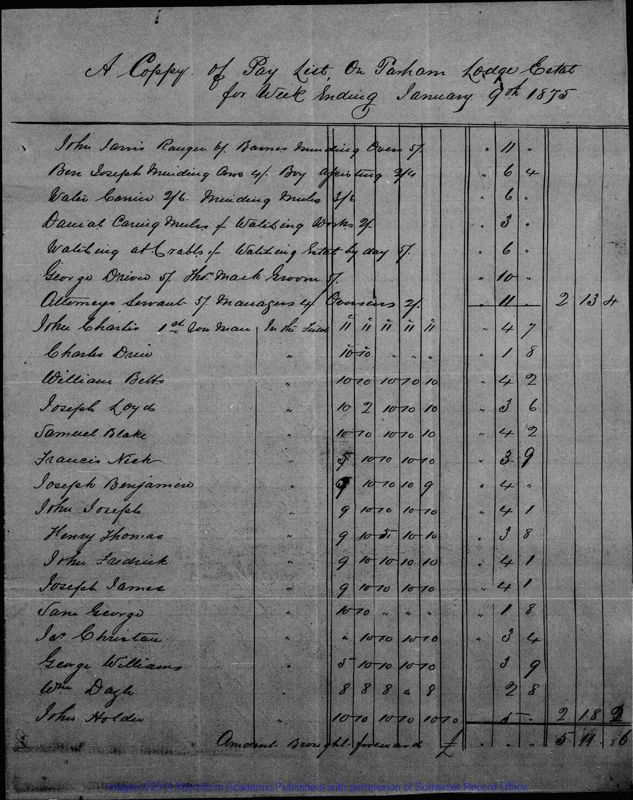 A Coppy of Pay List, On Parham Lodge Estat
for Week Ending January 9th 1875
John Jarvis Ranger 6/. Barnes Minding Oxen 5/. " 11 "
Ben Joseph Minding Cows 4/. Boy assisting 2/4 " 6 4
Water Carrier 2/6. Minding Mules 3/6 " 6 "
Danial Caring Mules & Watching Works 2/. " 3 "
Watching at Crabbs & Watching Estat by day 5/. " 6 "
George Driver 5/. Thos. Mack Groom 5/. " 10 "
Attorneys Servant 5/. Managers 4/. Overseers 2/. " 11 " 2 13 4
John Charles 1st Row Man In the Field 11 11 11 11 11 " 4 7
Charles Drew " 10 10 " " " " 1 8
William Betts " 10 10 10 10 10 " 4 2
Joseph Loyd " 10 2 10 10 10 " 3 6
Samuel Blake " 10 10 10 10 10 " 4 2
Francis Nick " 5 10 10 10 10 " 3 9
Joseph Benjamin " 9 10 10 10 9 " 4 "
John Joseph " 9 10 10 10 10 " 4 1
Henry Thomas " 9 10 5 10 10 " 3 8
John Fredrick " 9 10 10 10 10 " 4 1
Joseph James " 9 10 10 10 10 " 4 1
Jane George " 10 10 " " " " 1 8
Jas. Christian " " 10 10 10 10 " 3 4
George Williams " 5 10 10 10 10 3 9
Wm " 8 8 8 " 8 2 8
John Holder " 10 10 10 10 10 10 5 " 2 18 2
Amount Brought forward £ " " " 5 11 6
Images ©2014 Microform Academic Publishers with permission of Somerset Record Office